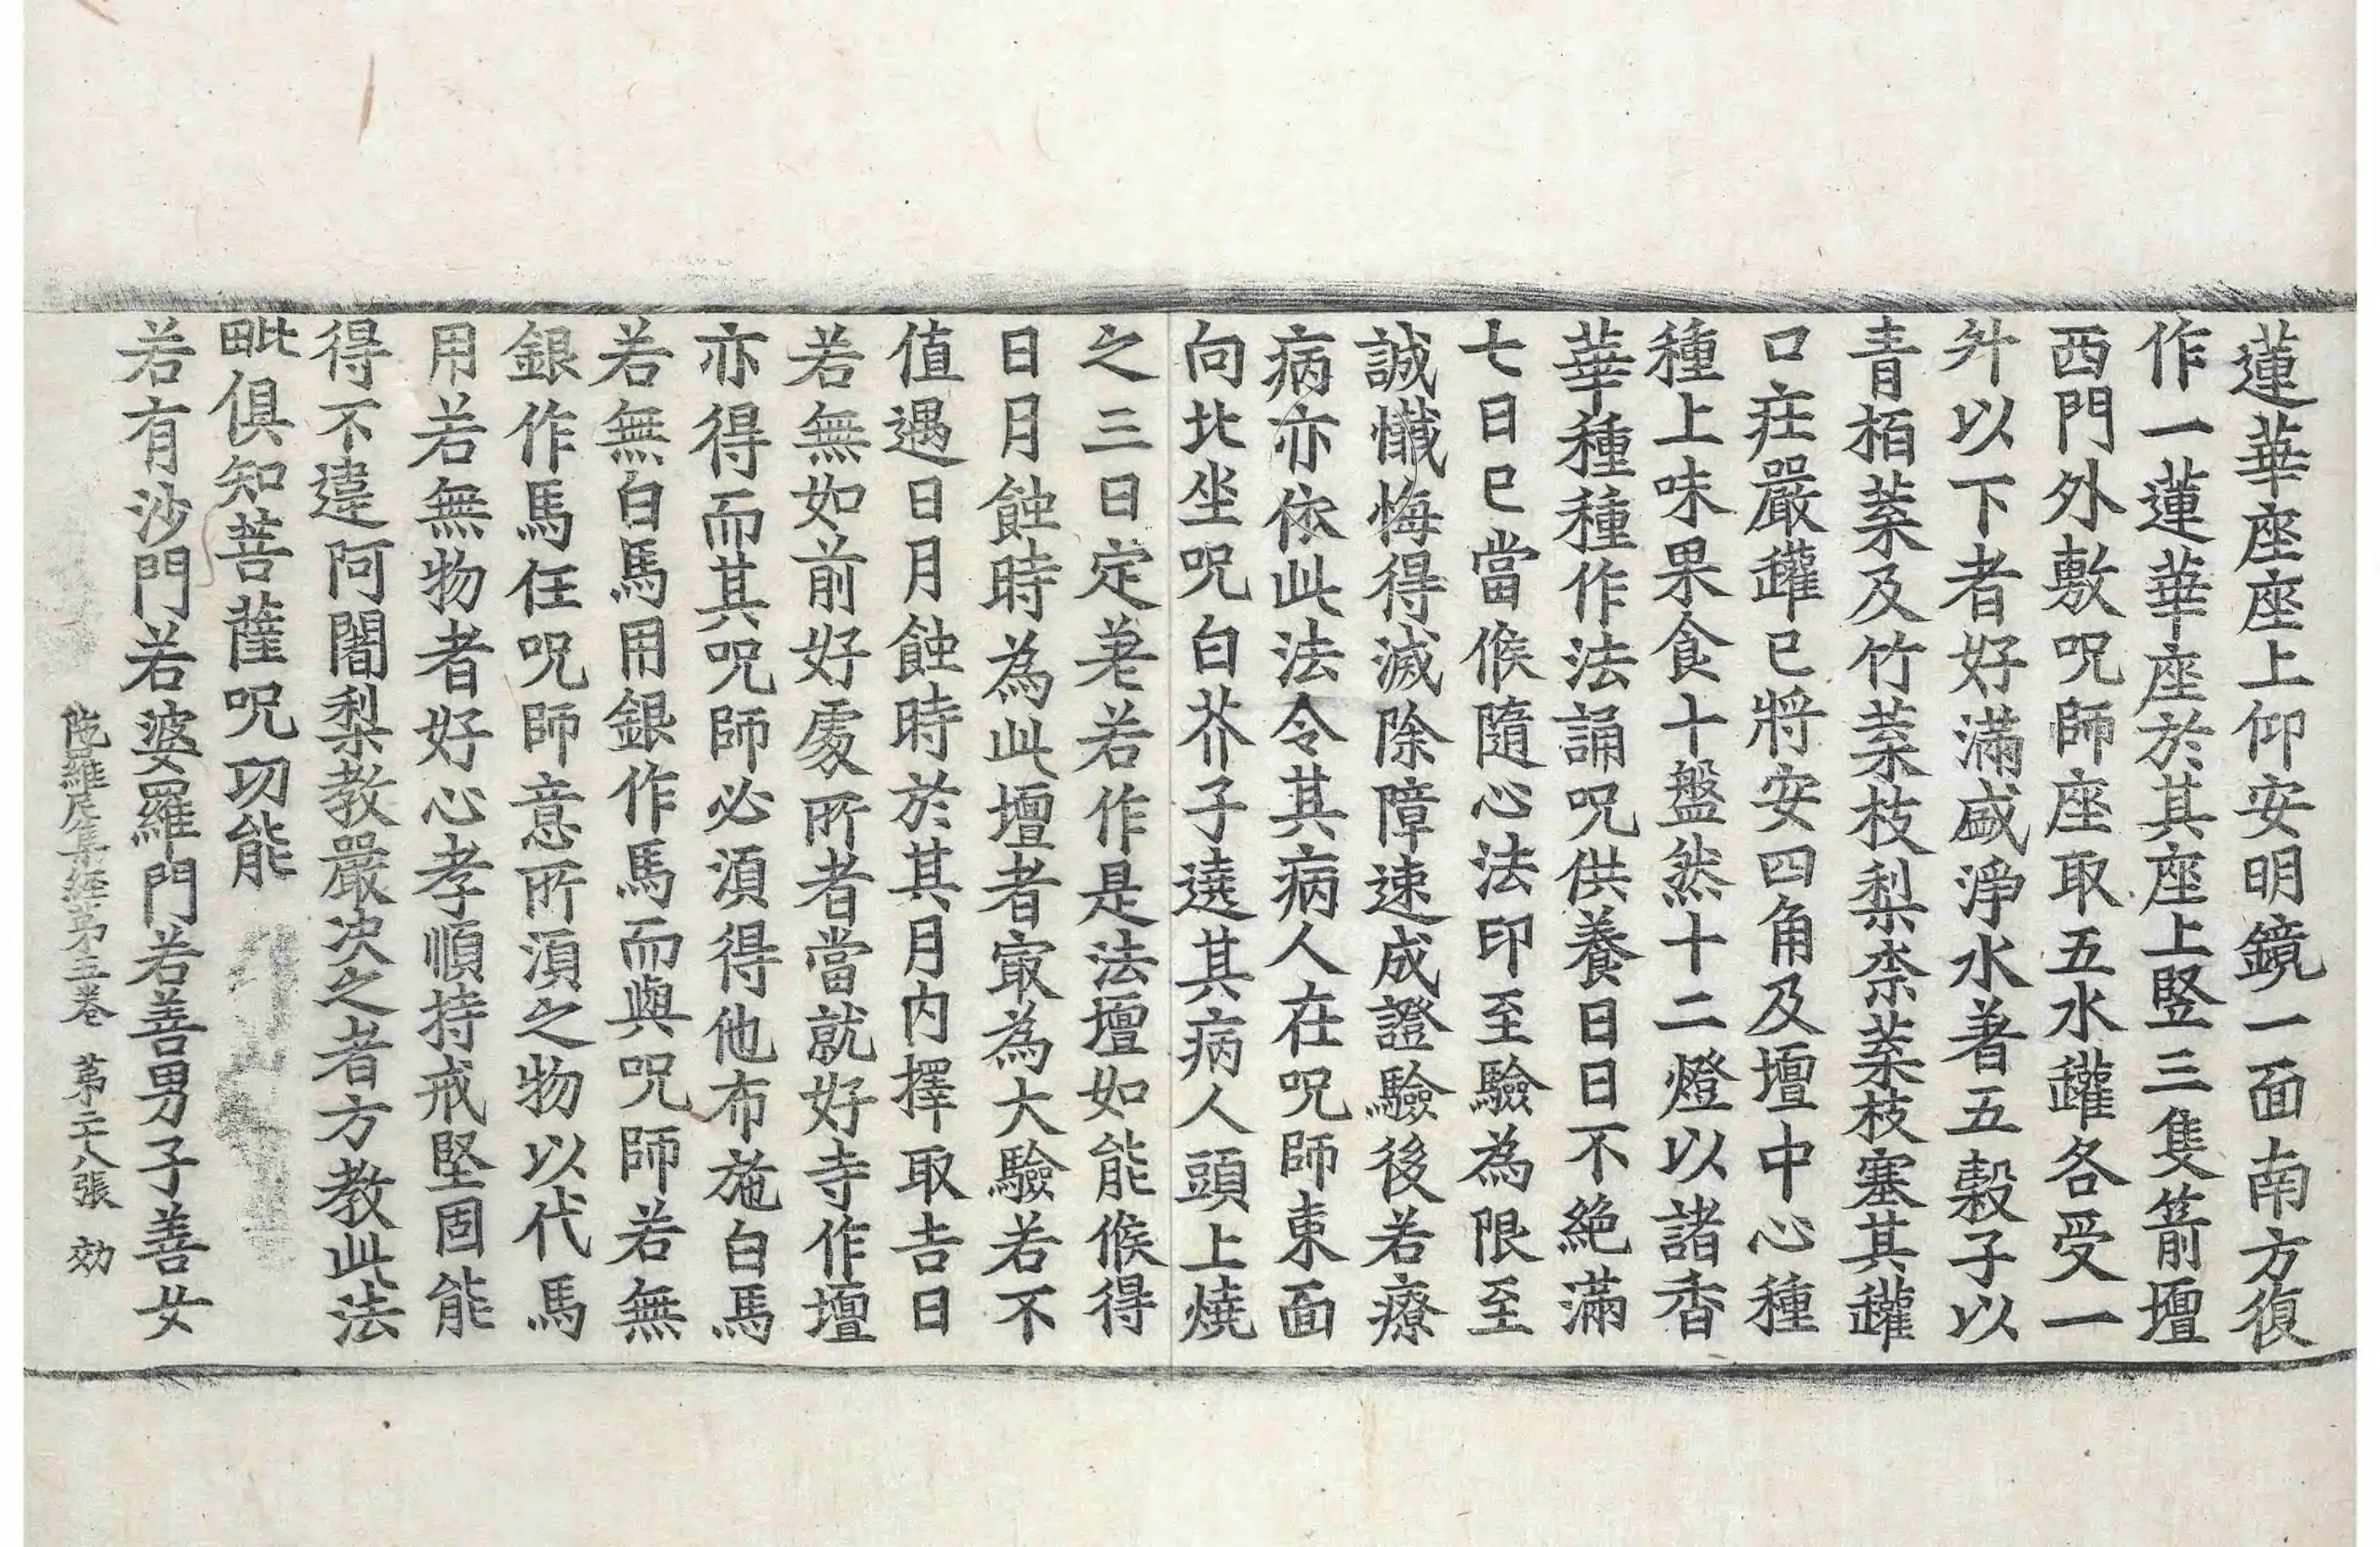 蓮華座座上仰安明鏡一面南方復
作一蓮華座於其座上竪三隻箭壇
西門外敷呪師座取五水罐各受一
升以下者好滿盛淨水著五穀子以
青栢葉及竹葉枝梨柰葉枝塞其罐
口庄嚴罐已將安四角及壇中心種
種上味果食十盤然十二燈以諸香
華種種作法誦呪供養日日不絶滿
七日已當候隨心法印至驗為限至
誠懴悔得滅除障速成證驗後若療
病亦依此法令其病人在呪師東面
向北坐呪白芥子遶其病人頭上燒
之三日定差若作是法壇如能候得
日月蝕時為此壇者㝡為大驗若不
值遇日月蝕時於其月内擇取吉日
若無如前好處所者當就好寺作壇
亦得而其呪師必湏得他布施白馬
若無白馬用銀作馬而與呪師若無
銀作馬任呪師意所湏之物以代馬
用若無物者好心孝順持戒堅固能
得不違阿闍梨教嚴决之者方教此法
毗俱知菩薩呪功能
若有沙門若婆羅門若善男子善女
陁羅尼集經第五卷 苐二十八張 効